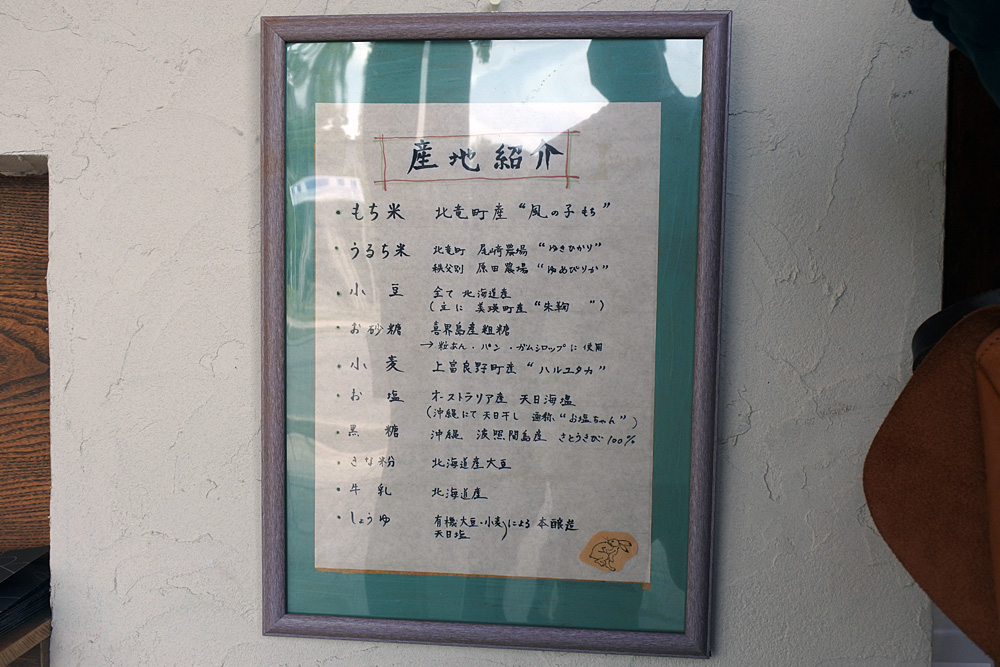 産地紹介
・もち米 北竜町産 “風の子もち”
・うるち米 北竜町 尾崎農場 “ゆきひかり”
秩父別 原田農場 “ゆめぴりか”
・小豆 全て北海道産
(主に 美瑛町産 “朱鞠 ”)
・お砂糖 喜界島産粗糖
→粒あん・パン・ガムシロップに使用
・小麦 上富良野町産 “ハルユタカ”
・お塩 オーストラリア産 天日海塩
(沖縄にて天日干し 通称 “お塩ちゃん”)
・黒糖 沖縄 波照間島産 さとうきび100%
・きな粉 北海道産大豆
・牛乳 北海道産
・しょうゆ 有機大豆・小麦 による 本醸造
天日塩